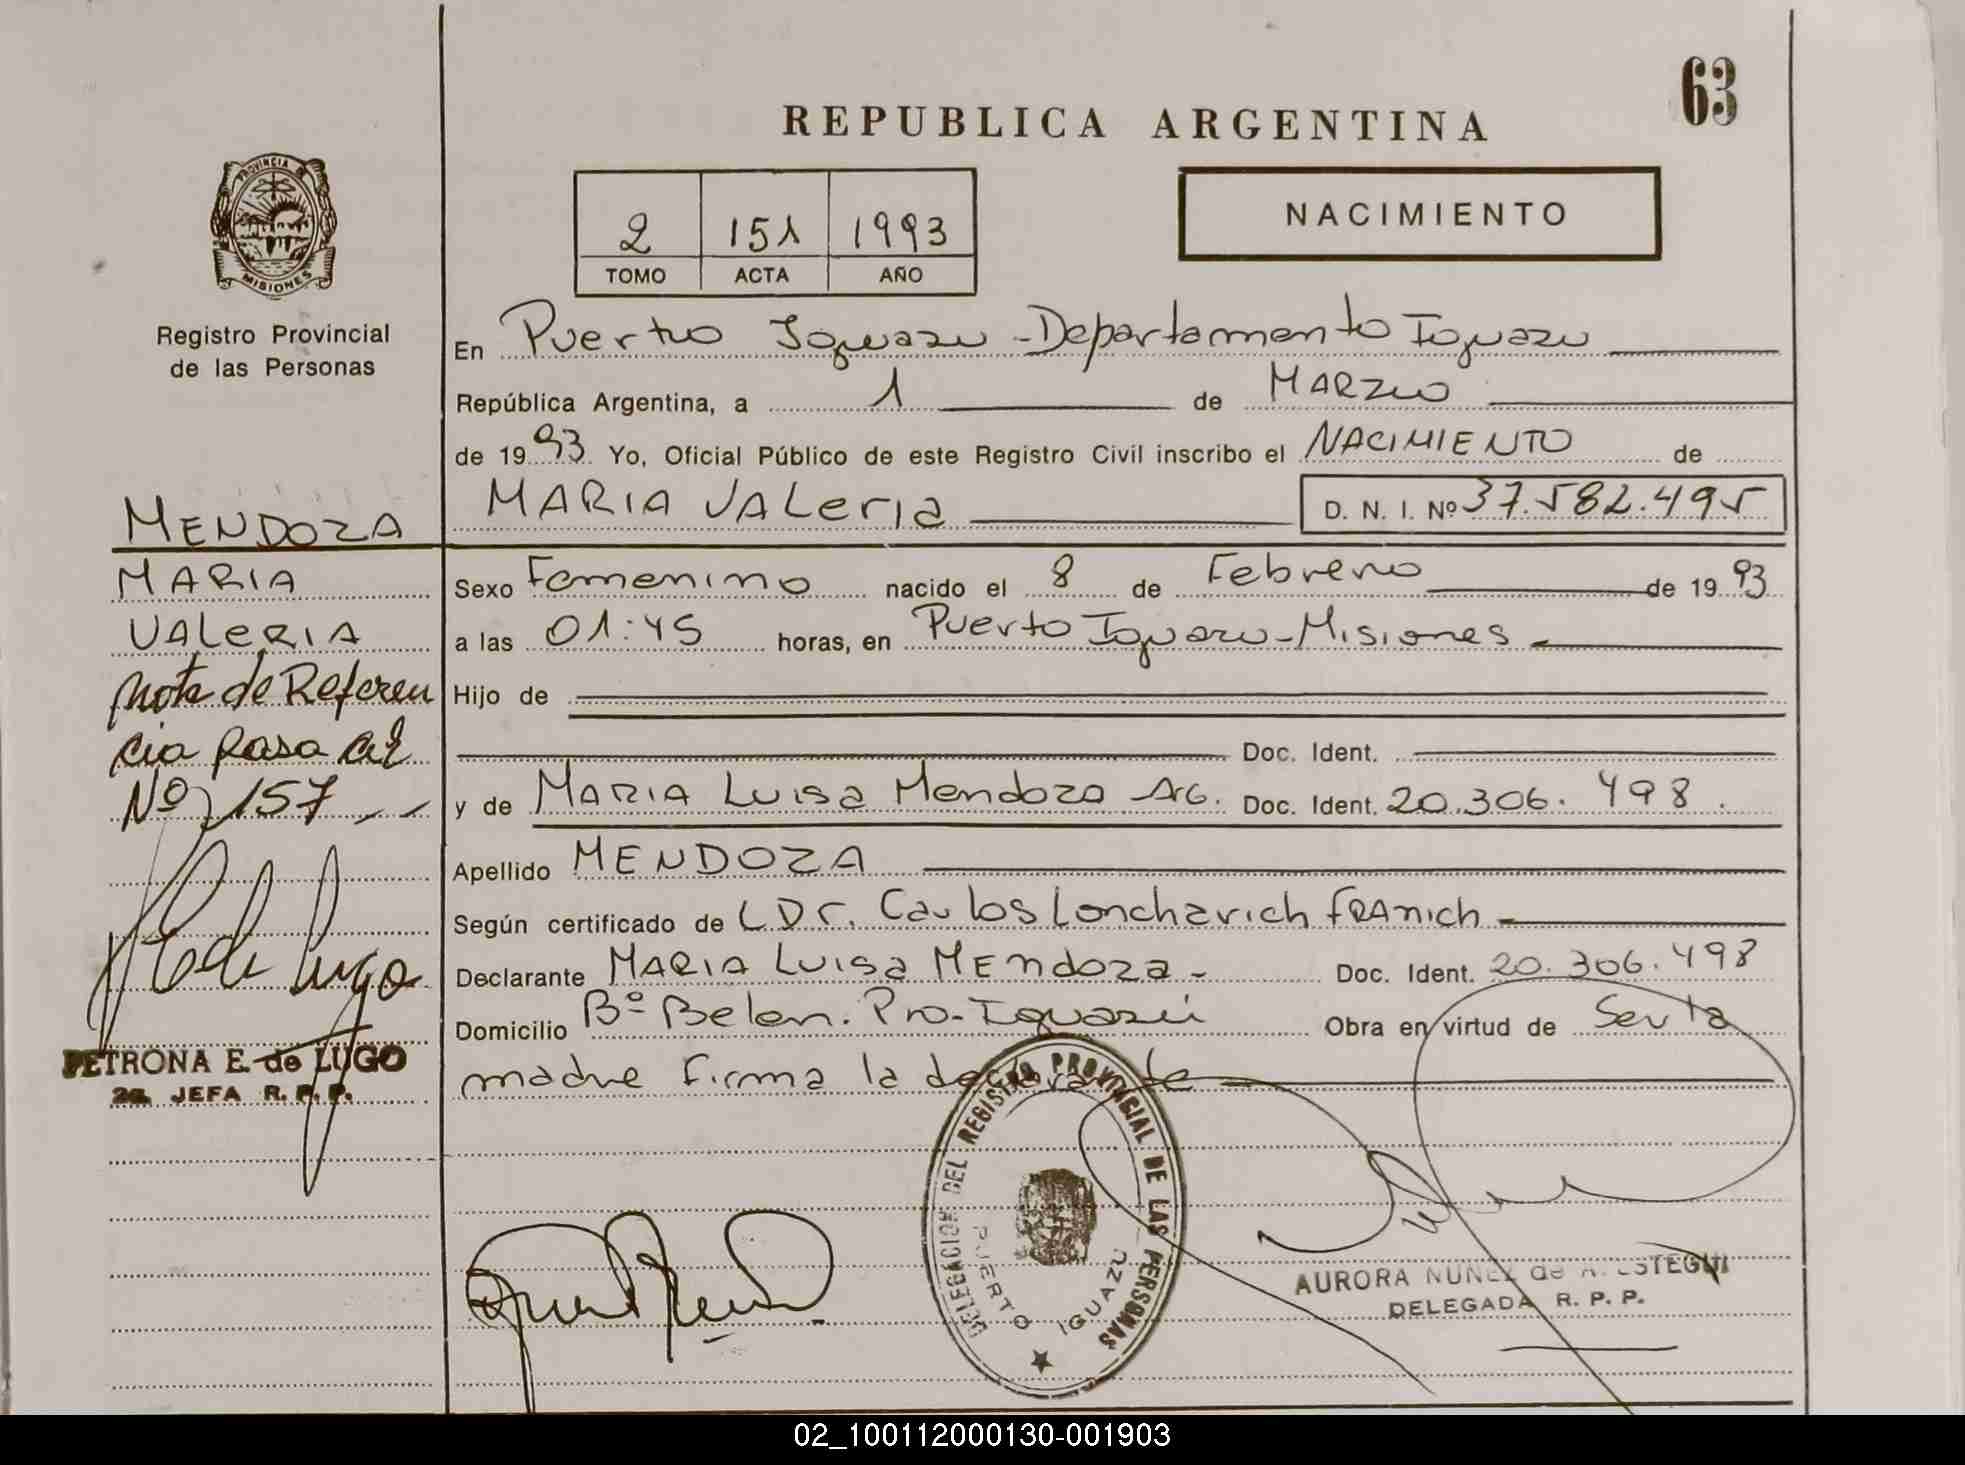 63
REPUBLICA ARGENTINA
PROVINCIA DE
MISIONES
Registro Provincial
de las Personas
2 151 1993
TOMO ACTA AÑO
NACIMIENTO
En Puerto Iguazu - Departamento Iguazu
República Argentina, a 1 de MARZO
de 1993 Yo, Oficial Público de este Registro Civil inscribo el NACIMIENTO de
MARIA VALeria D. N. I. Nº 37.582.495
MENDOZA
MARIA
VALERIA
nota de Referen
cia pasa al
Nº 157
PETRONA E. de LUGO
2a. JEFA R. P. P.
Sexo Femenino nacido el 8 de Febrero de 1993
a las 01:45 horas, en Puerto Iguazu - Misiones
Hijo de
Doc. Ident.
y de MARIA Luisa Mendoza ARG. Doc. Ident. 20.306.498.
Apellido MENDOZA
Según certificado de Carlos Loncharich FRAnich
Declarante MARIA Luisa MEndoza - Doc. Ident. 20.306.498
Domicilio Bº Belen. Pto- Iguazú Obra en virtud de Ser la
madre firma la declarante
DELEGACION DEL REGISTRO PROVINCIAL DE LAS PERSONAS
PUERTO IGUAZU
AURORA NUÑEZ de
DELEGADA R. P. P.
02_100112000130-001903